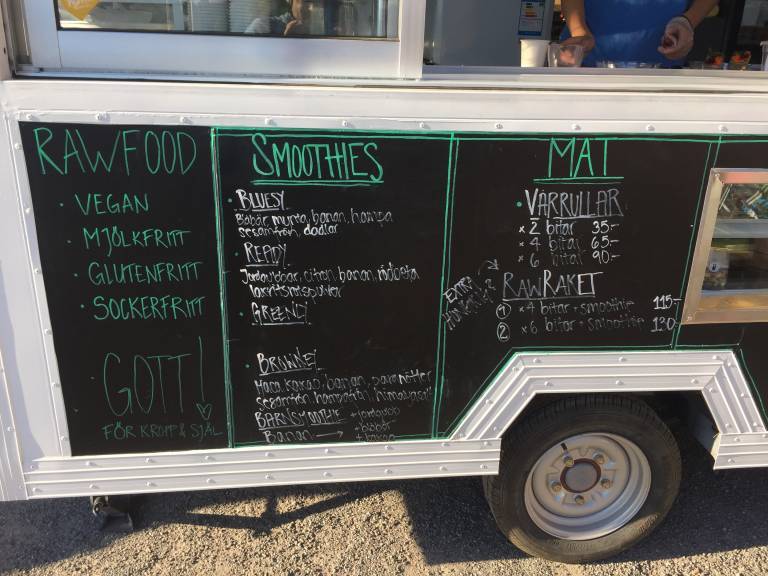 RAWFOOD
• VEGAN
• MJÖLKFRITT
• GLUTENFRITT
• SOCKERFRITT
• GOTT!
FÖR KROPP & SJÄL
SMOOTHIES
• BLUESY
banan, hampa
sesamfrön, dadlar
• READY
Jordgubbar, citron, banan
lakritsrotspulver
• GREENDY
• BROWNEY
Maca, kakao, banan, paranötter
BARNSMOOTHIE + jordgubb
Banan → + blåbär
MAT
• VÅRRULLAR
× 2 bitar 35:-
× 4 bitar 65:-
× 6 bitar 90:-
EXTRA
RAWRAKET
① × 4 bitar + smoothie 115:-
② × 6 bitar + smoothie 130:-